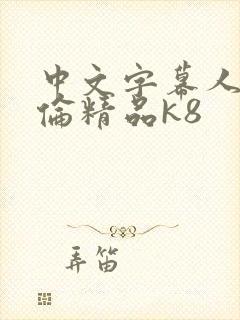 中文字幕人
倫精品k8
弄笛